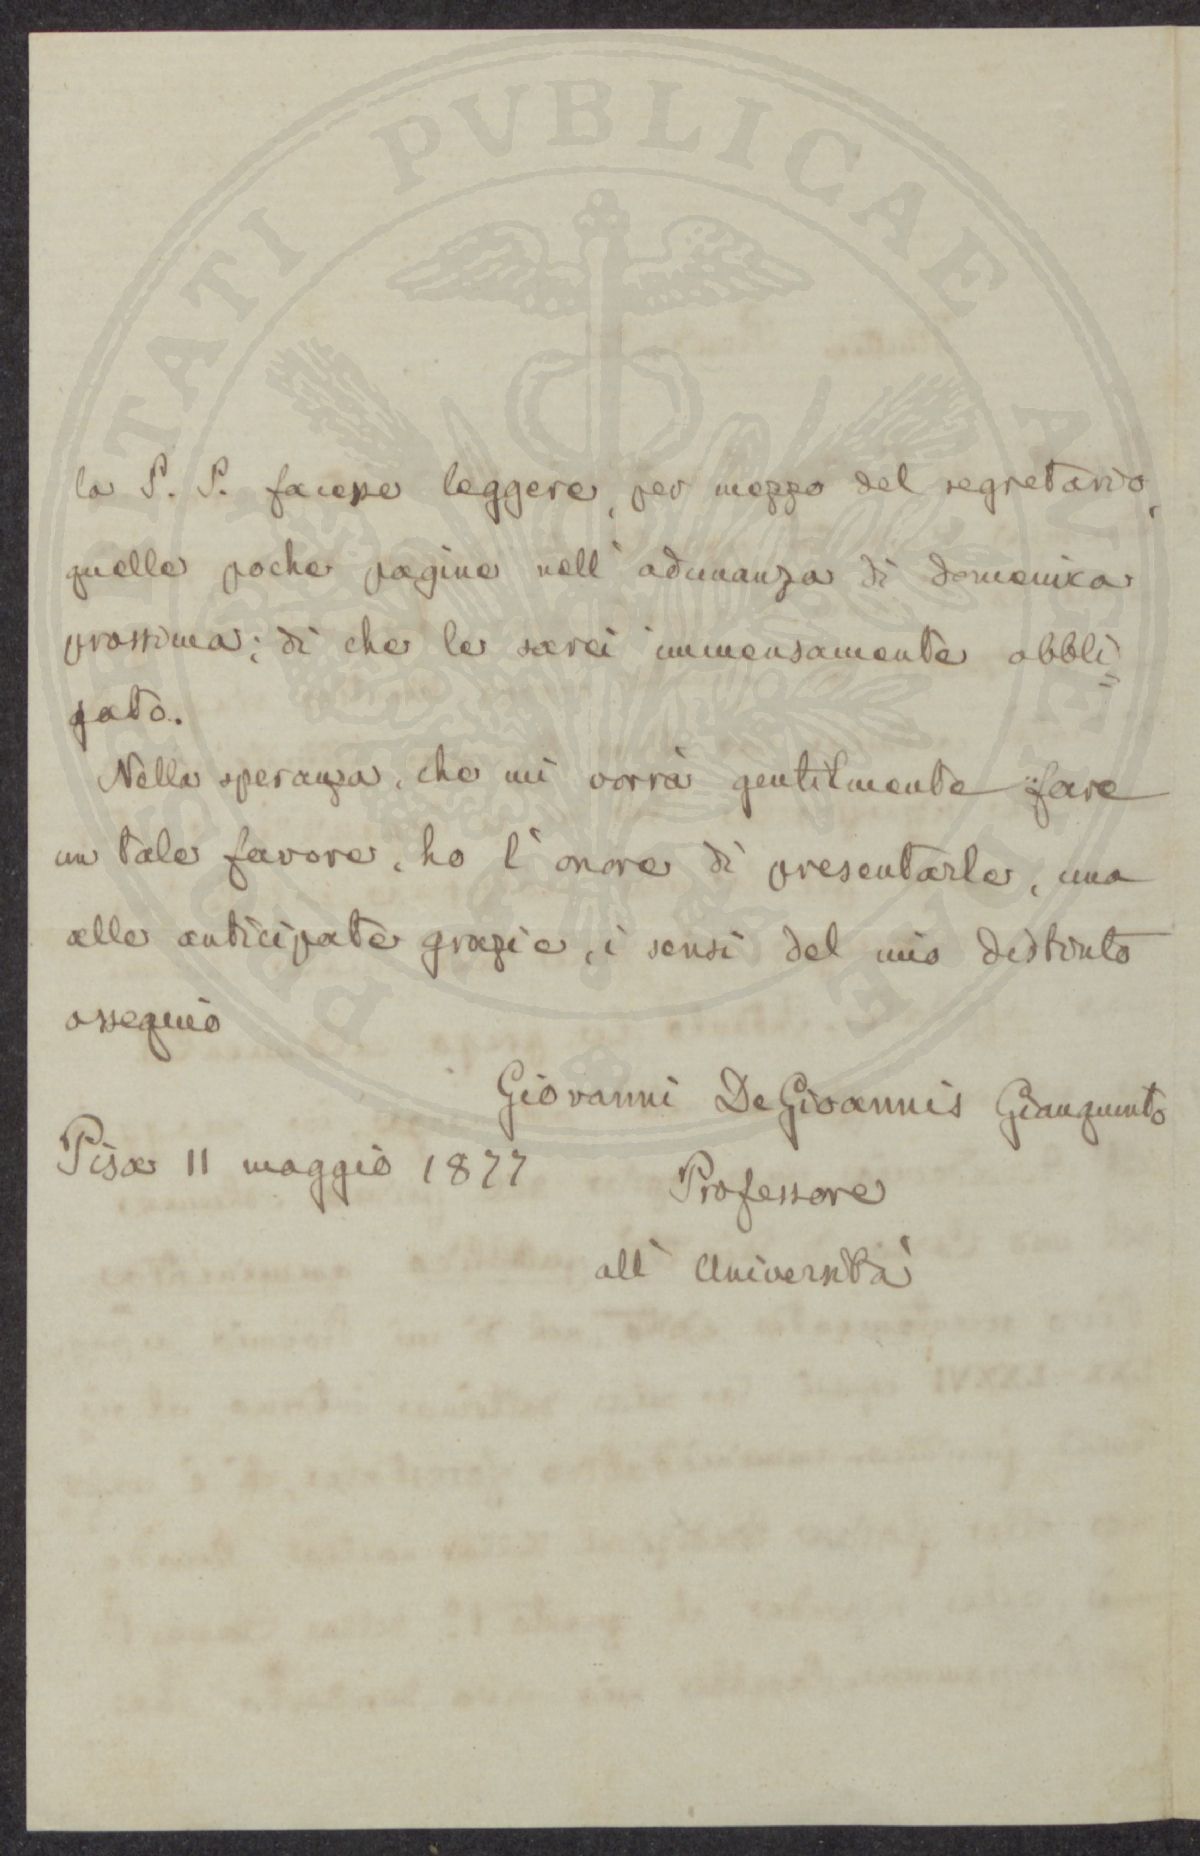 la S. S. facesse leggere, per mezzo del segretario,
quelle poche pagine nell'adunanza di domenica
prossima; di che le sarei immensamente obbli=
gato.
Nella speranza, che mi vorrà gentilmente fare
un tale favore, ho l'onore di presentarle, una
alle anticipate grazie, i sensi del mio distinto
ossequio
Giovanni De Gioannis Gianquinto
Pisa 11 maggio 1877
Professore
all'Università
PROSPERITATI PVBLICAE AVGENDAE